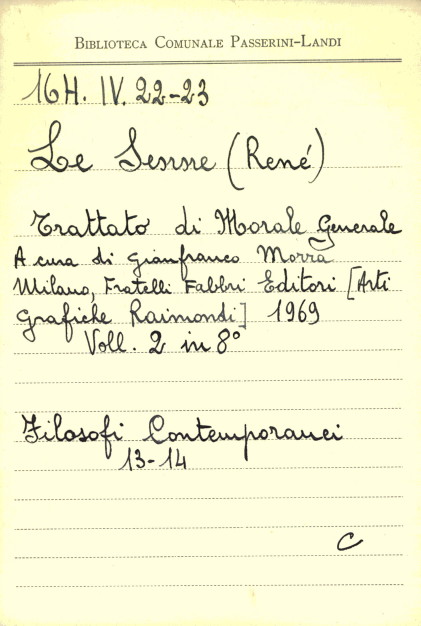 BIBLIOTECA COMUNALE PASSERINI-LANDI
16H. IV. 22-23
Le Senne (René)
Trattato di Morale Generale
A cura di Gianfranco Morra
Milano, Fratelli Fabbri Editori [Arti
Grafiche Raimondi] 1969
Voll. 2 in 8°
Filosofi Contemporanei
13-14
C